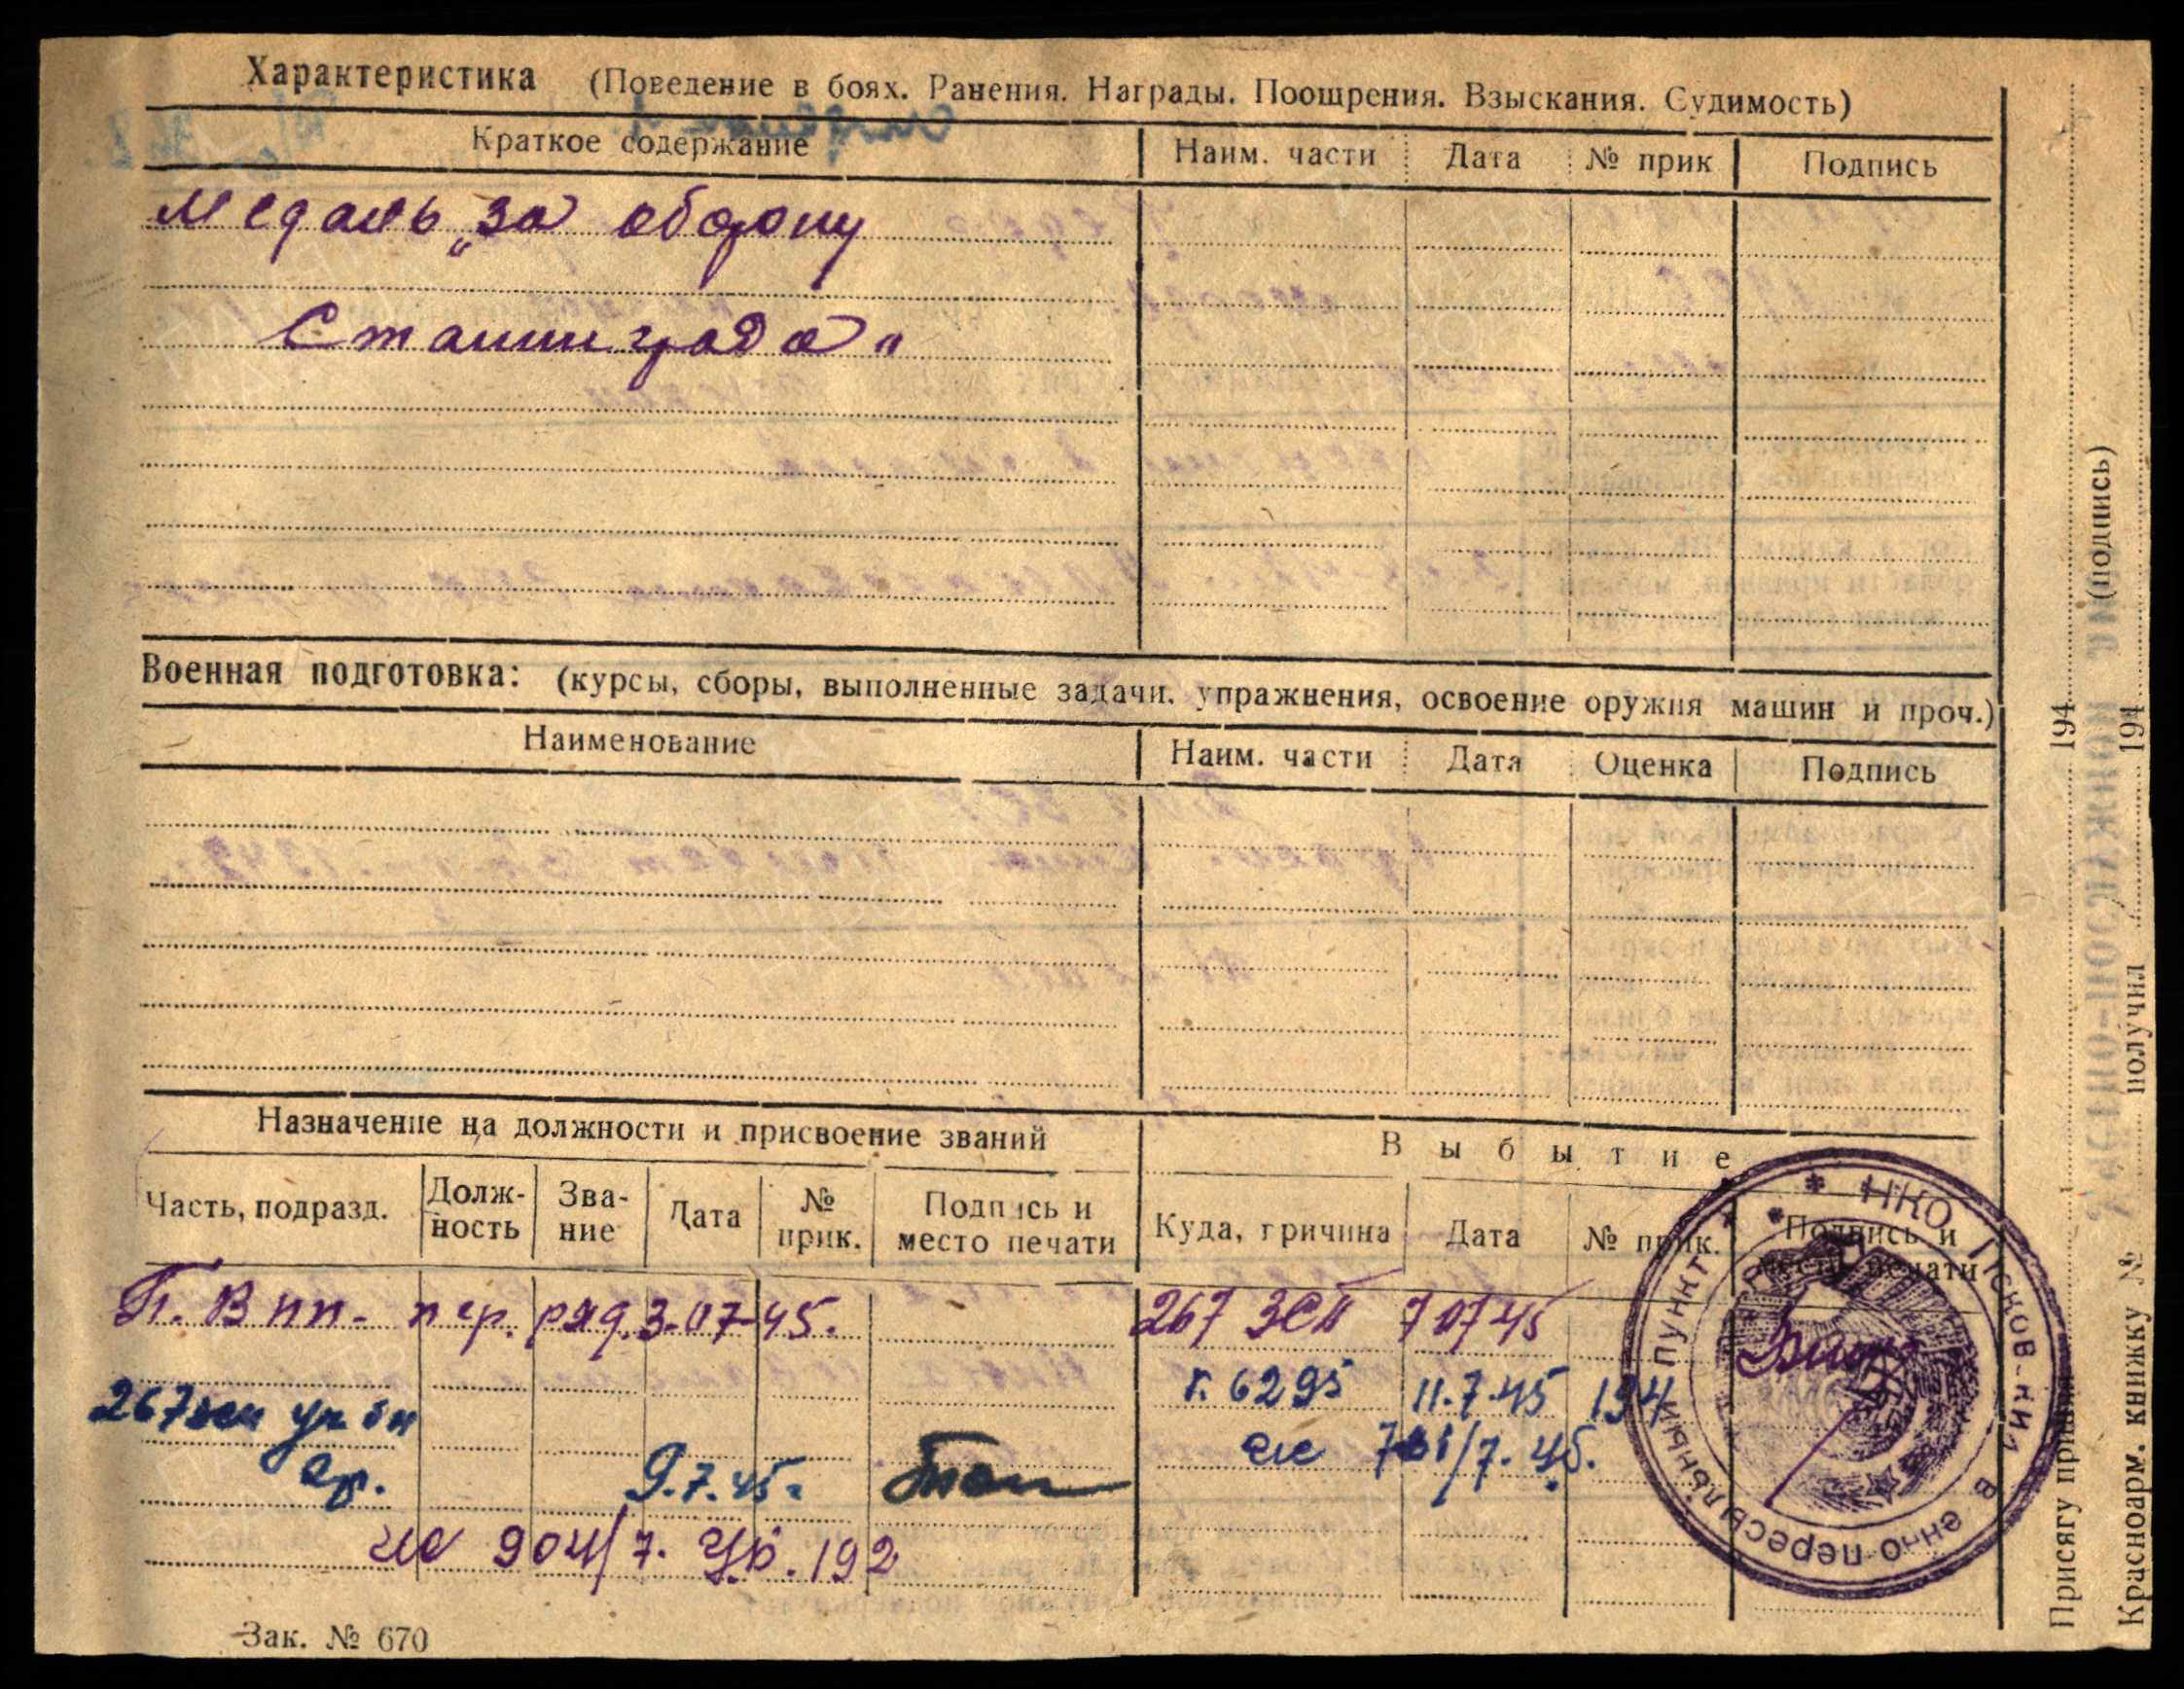 Характеристика (Поведение в боях. Ранения. Награды. Поощрения. Взыскания. Судимость)
Краткое содержание Наим. части Дата № прик Подпись
Медаль „за оборону
Сталинграда"
Военная подготовка: (курсы, сборы, выполненные задачи. упражнения, освоение оружия машин и проч.)
Наименование Наим. части Дата Оценка Подпись
Назначение на должности и присвоение званий
Выбытие
Часть, подразд. Должность Звание Дата № прик. Подпись и место печати Куда, причина Дата № прик. Подпись и место печати
П. В пп. пер. ряд. 3-07-45. 267 ЗСП 7 07 45
267 зсп уч бн 9.7.45. г. 6295 11.7.45 194
7. 45. 192
НКО Псков
пересыльный пункт
Зак. № 670
Присягу принял 194 (подпись)
Красноарм. книжку № получил 194